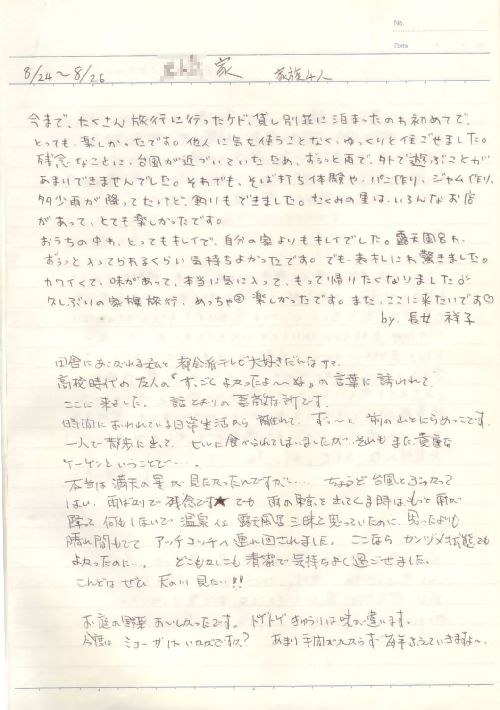 No.
Date
8/24〜8/26 家 家族4人
今まで、たくさん旅行に行ったケド、貸し別荘に泊まったのわ初めてで、
とっても楽しかったです。他人に気を使うことなく、ゆっくりと住ごせました。
残念なことに、台風が近づいていたため、ずぅっと雨で、外トで遊ぶことが
あまりできませんでした。それでも、そば打ち体験や、パン作り、ジャム作り、
多少雨が降ってたけど、釣りもできました。たくみの里は、いろんなお店
があって、とても楽しかったです。
おうちの中わ、とってもキレイで、自分の家よりもキレイでした。露天風呂わ、
ずぅっと入ってられるくらい気持ちよかったです。でも、お
キレイにわ驚きました。
カワイくて、味があって、本当に気に入って、もって帰りたくなりました
久しぶりの家族旅行、めっちゃ楽しかったです。また、ここに来たいです♡
by. 長女 祥子
田舎にあこがれる私と都会派テレビ大好きだんなサマ。
高校時代の友人の『すっごくよかったよ〜ね』の言葉に誘われて
ここに来ました。 話どおりの
時間におわれている日常生活から離れて、ずぅ〜と 前の山とにらめっこです。
一人で散歩に出て、ヒルに食べられてしまいましたが、それもまた貴重な
ケーケンということで…。
本当は満天の星が見たかったんですが… ちょうど台風とぶつかって
しまい、雨ばかりで残念です★ でも 雨の東京を出てくる時は、もっと雨が
降って 何もしないで 温泉 露天風呂三昧と思っていたのに、思ったよりも
晴れ間もでて アッチコッチへ連れ回されました。ここなら カンヅメ状態でも
よかったのに…。 どこもかしこも清潔で気持ちよく過ごせました。
こんどは ぜひ 天の川 見たい!!
お庭の野菜 おいしかったです。トゲトゲきゅうりは味が違います。
今度は ミョーガ いかがですか? あまり手間がかからず 毎年ふえていきますよ〜